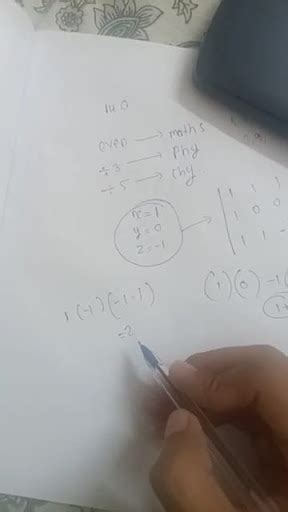 140
even → maths
÷3 → Phy
÷5 → Chy
x=1
y=0
z=-1
1 1 1
1 0 0
1 1 -
1(-1)(-1-1)
=2
(1)(0)-1(
1+